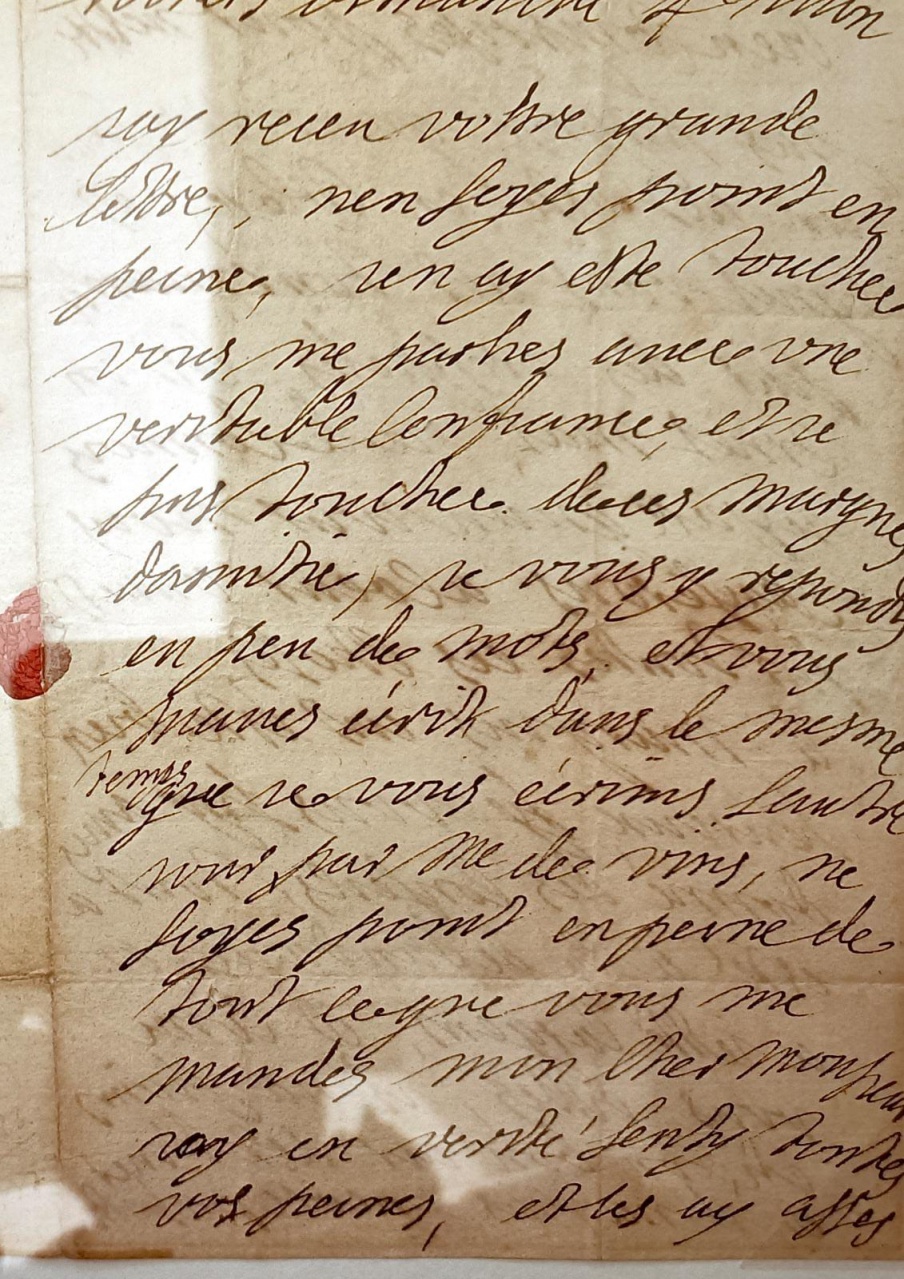 mon
jay receu vostre grande
lettre, nen soyes point en
peine, jen ay esté touchee
vous me parlres avec vne
veritable confiance, et je
suis touchee de ces marques
damitié, je vous y repondis
en peu de mots, et vous
maves écrit dans le mesme
temps
que je vous écrivis lautre
jour par me de vins, ne
soyes point en peine de
tout ce que vous me
mandes mon cher monsieur
jay en verité senty toutes
vos peines, et les ay asses